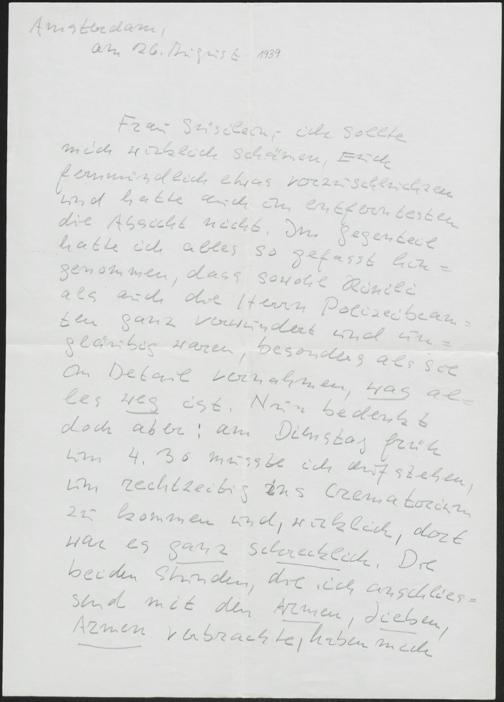 Amsterdam,
am 26. August 1939
Frau ich sollte
mich wirklich schämen, Euch
fernmündlich etwas vorzuschluchzen
und hatte auch im entferntesten
die Absicht nicht. Im Gegenteil
hatte ich alles so gefasst hin=
genommen, dass sowohl
als auch die Herrn Polizeibeam=
ten ganz verwundert und un=
gläubig waren, besonders als sie
en Detail vernahmen, was al=
les weg ist. Nun bedenkt
doch aber: am Dienstag früh
um 4.30 musste ich aufstehen,
um rechtzeitig ins Crematorium
zu kommen und, wirklich, dort
war es ganz schrecklich. Die
beiden Stunden, die ich anschlies=
send mit den Armen, Lieben,
Armen verbrachte, haben mich